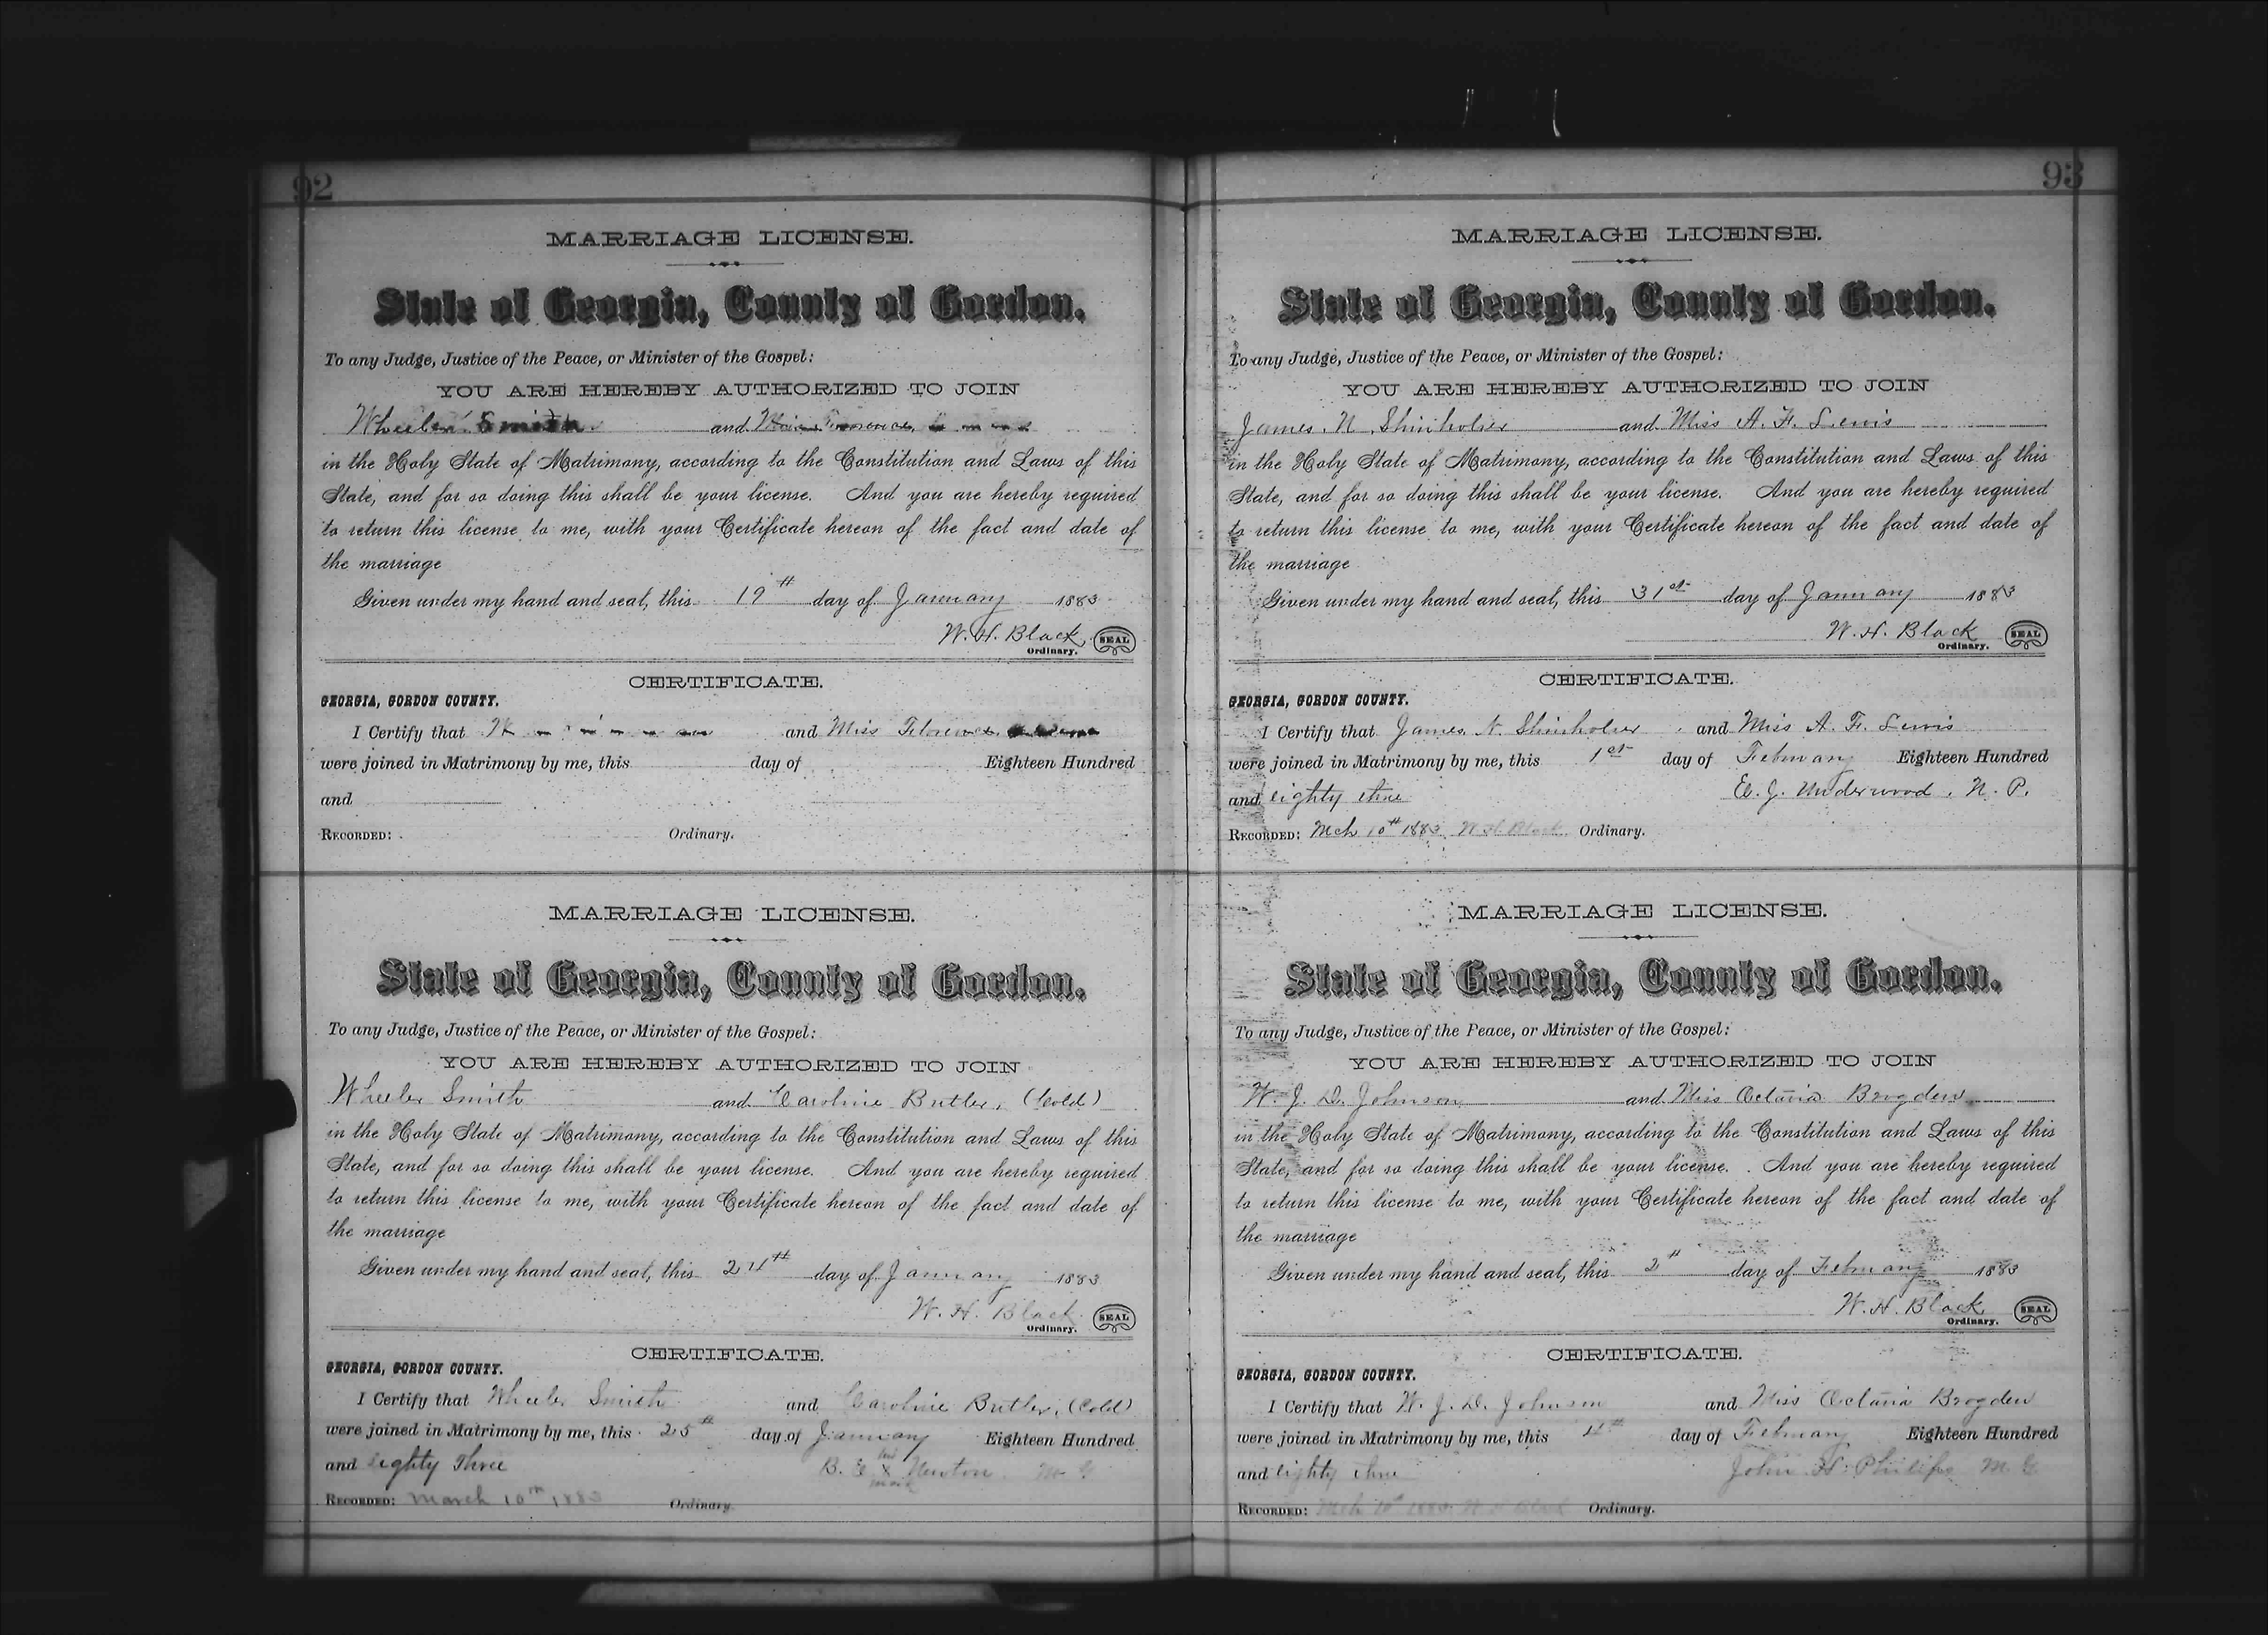 92
MARRIAGE LICENSE.
State of Georgia, County of Gordon.
To any Judge, Justice of the Peace, or Minister of the Gospel:
YOU ARE HEREBY AUTHORIZED TO JOIN
Wheeler Smith and Miss Florence
in the Holy State of Matrimony, according to the Constitution and Laws of this
State, and for so doing this shall be your license. And you are hereby required
to return this license to me, with your Certificate hereon of the fact and date of
the marriage
Given under my hand and seal, this 19th day of January 1883
W. H. Black SEAL
Ordinary.
CERTIFICATE.
GEORGIA, GORDON COUNTY.
I Certify that and Miss Florence
were joined in Matrimony by me, this day of Eighteen Hundred
and
RECORDED: Ordinary.
MARRIAGE LICENSE.
State of Georgia, County of Gordon.
To any Judge, Justice of the Peace, or Minister of the Gospel:
YOU ARE HEREBY AUTHORIZED TO JOIN
Wheeler Smith and Caroline Butler, (Cold)
in the Holy State of Matrimony, according to the Constitution and Laws of this
State, and for so doing this shall be your license. And you are hereby required
to return this license to me, with your Certificate hereon of the fact and date of
the marriage
Given under my hand and seal, this 24th day of January 1883
W. H. Black SEAL
Ordinary.
CERTIFICATE.
GEORGIA, GORDON COUNTY.
I Certify that Wheeler Smith and Caroline Butler, (Cold)
were joined in Matrimony by me, this 25th day of January Eighteen Hundred
and eighty Three B. E. his x mark Newton M G
RECORDED: March 10th 1883 Ordinary.
93
MARRIAGE LICENSE.
State of Georgia, County of Gordon.
To any Judge, Justice of the Peace, or Minister of the Gospel:
YOU ARE HEREBY AUTHORIZED TO JOIN
James. N. Shinholser and Miss A. F. Lewis
in the Holy State of Matrimony, according to the Constitution and Laws of this
State, and for so doing this shall be your license. And you are hereby required
to return this license to me, with your Certificate hereon of the fact and date of
the marriage
Given under my hand and seal, this 31st day of January 1883
W. H. Black SEAL
Ordinary.
CERTIFICATE.
GEORGIA, GORDON COUNTY.
I Certify that James. N. Shinholser and Miss A. F. Lewis
were joined in Matrimony by me, this 1st day of February Eighteen Hundred
and eighty three E. J. Underwood, N. P.
RECORDED: Mch 10th 1883. W H Black Ordinary.
MARRIAGE LICENSE.
State of Georgia, County of Gordon.
To any Judge, Justice of the Peace, or Minister of the Gospel:
YOU ARE HEREBY AUTHORIZED TO JOIN
W. J. D. Johnson and Miss Octavia Brogden
in the Holy State of Matrimony, according to the Constitution and Laws of this
State, and for so doing this shall be your license. And you are hereby required
to return this license to me, with your Certificate hereon of the fact and date of
the marriage
Given under my hand and seal, this day of February 1883
W. H. Black SEAL
Ordinary.
CERTIFICATE.
GEORGIA, GORDON COUNTY.
I Certify that W. J. D. Johnson and Miss Octavia Brogden
were joined in Matrimony by me, this day of February Eighteen Hundred
and eighty three John H. Philips M G
RECORDED: Mch 10th 1883. W H Black Ordinary.